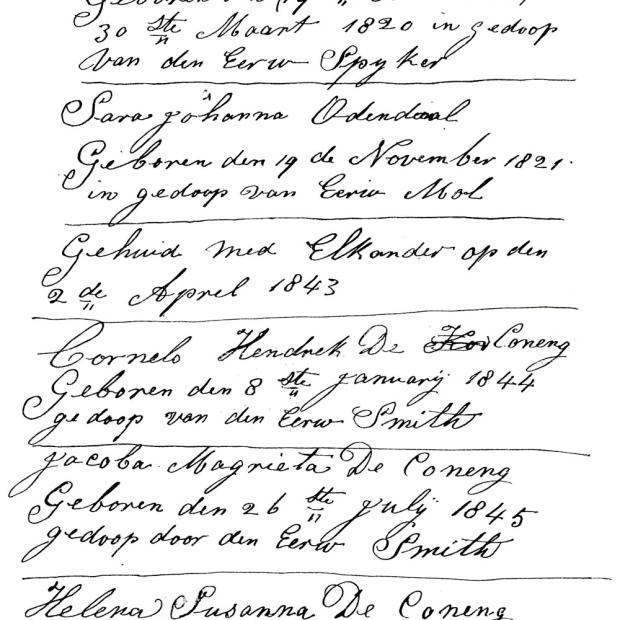 Geboren
30 ste Maart 1820 in gedoop
van den Eerw Spyker
Sara Johanna Odendaal
Geboren den 19 de November 1821.
in gedoop van Eerw Mol
Gehuid med Elkander op den
2 de Aprel 1843
Cornelo Hendrek De Coneng
Geboren den 8 ste january 1844
gedoop van den Eerw Smith
Jacoba Magrieta De Coneng
Geboren den 26 ste july 1845
gedoop door den Eerw Smith
Helena Susanna De Coneng